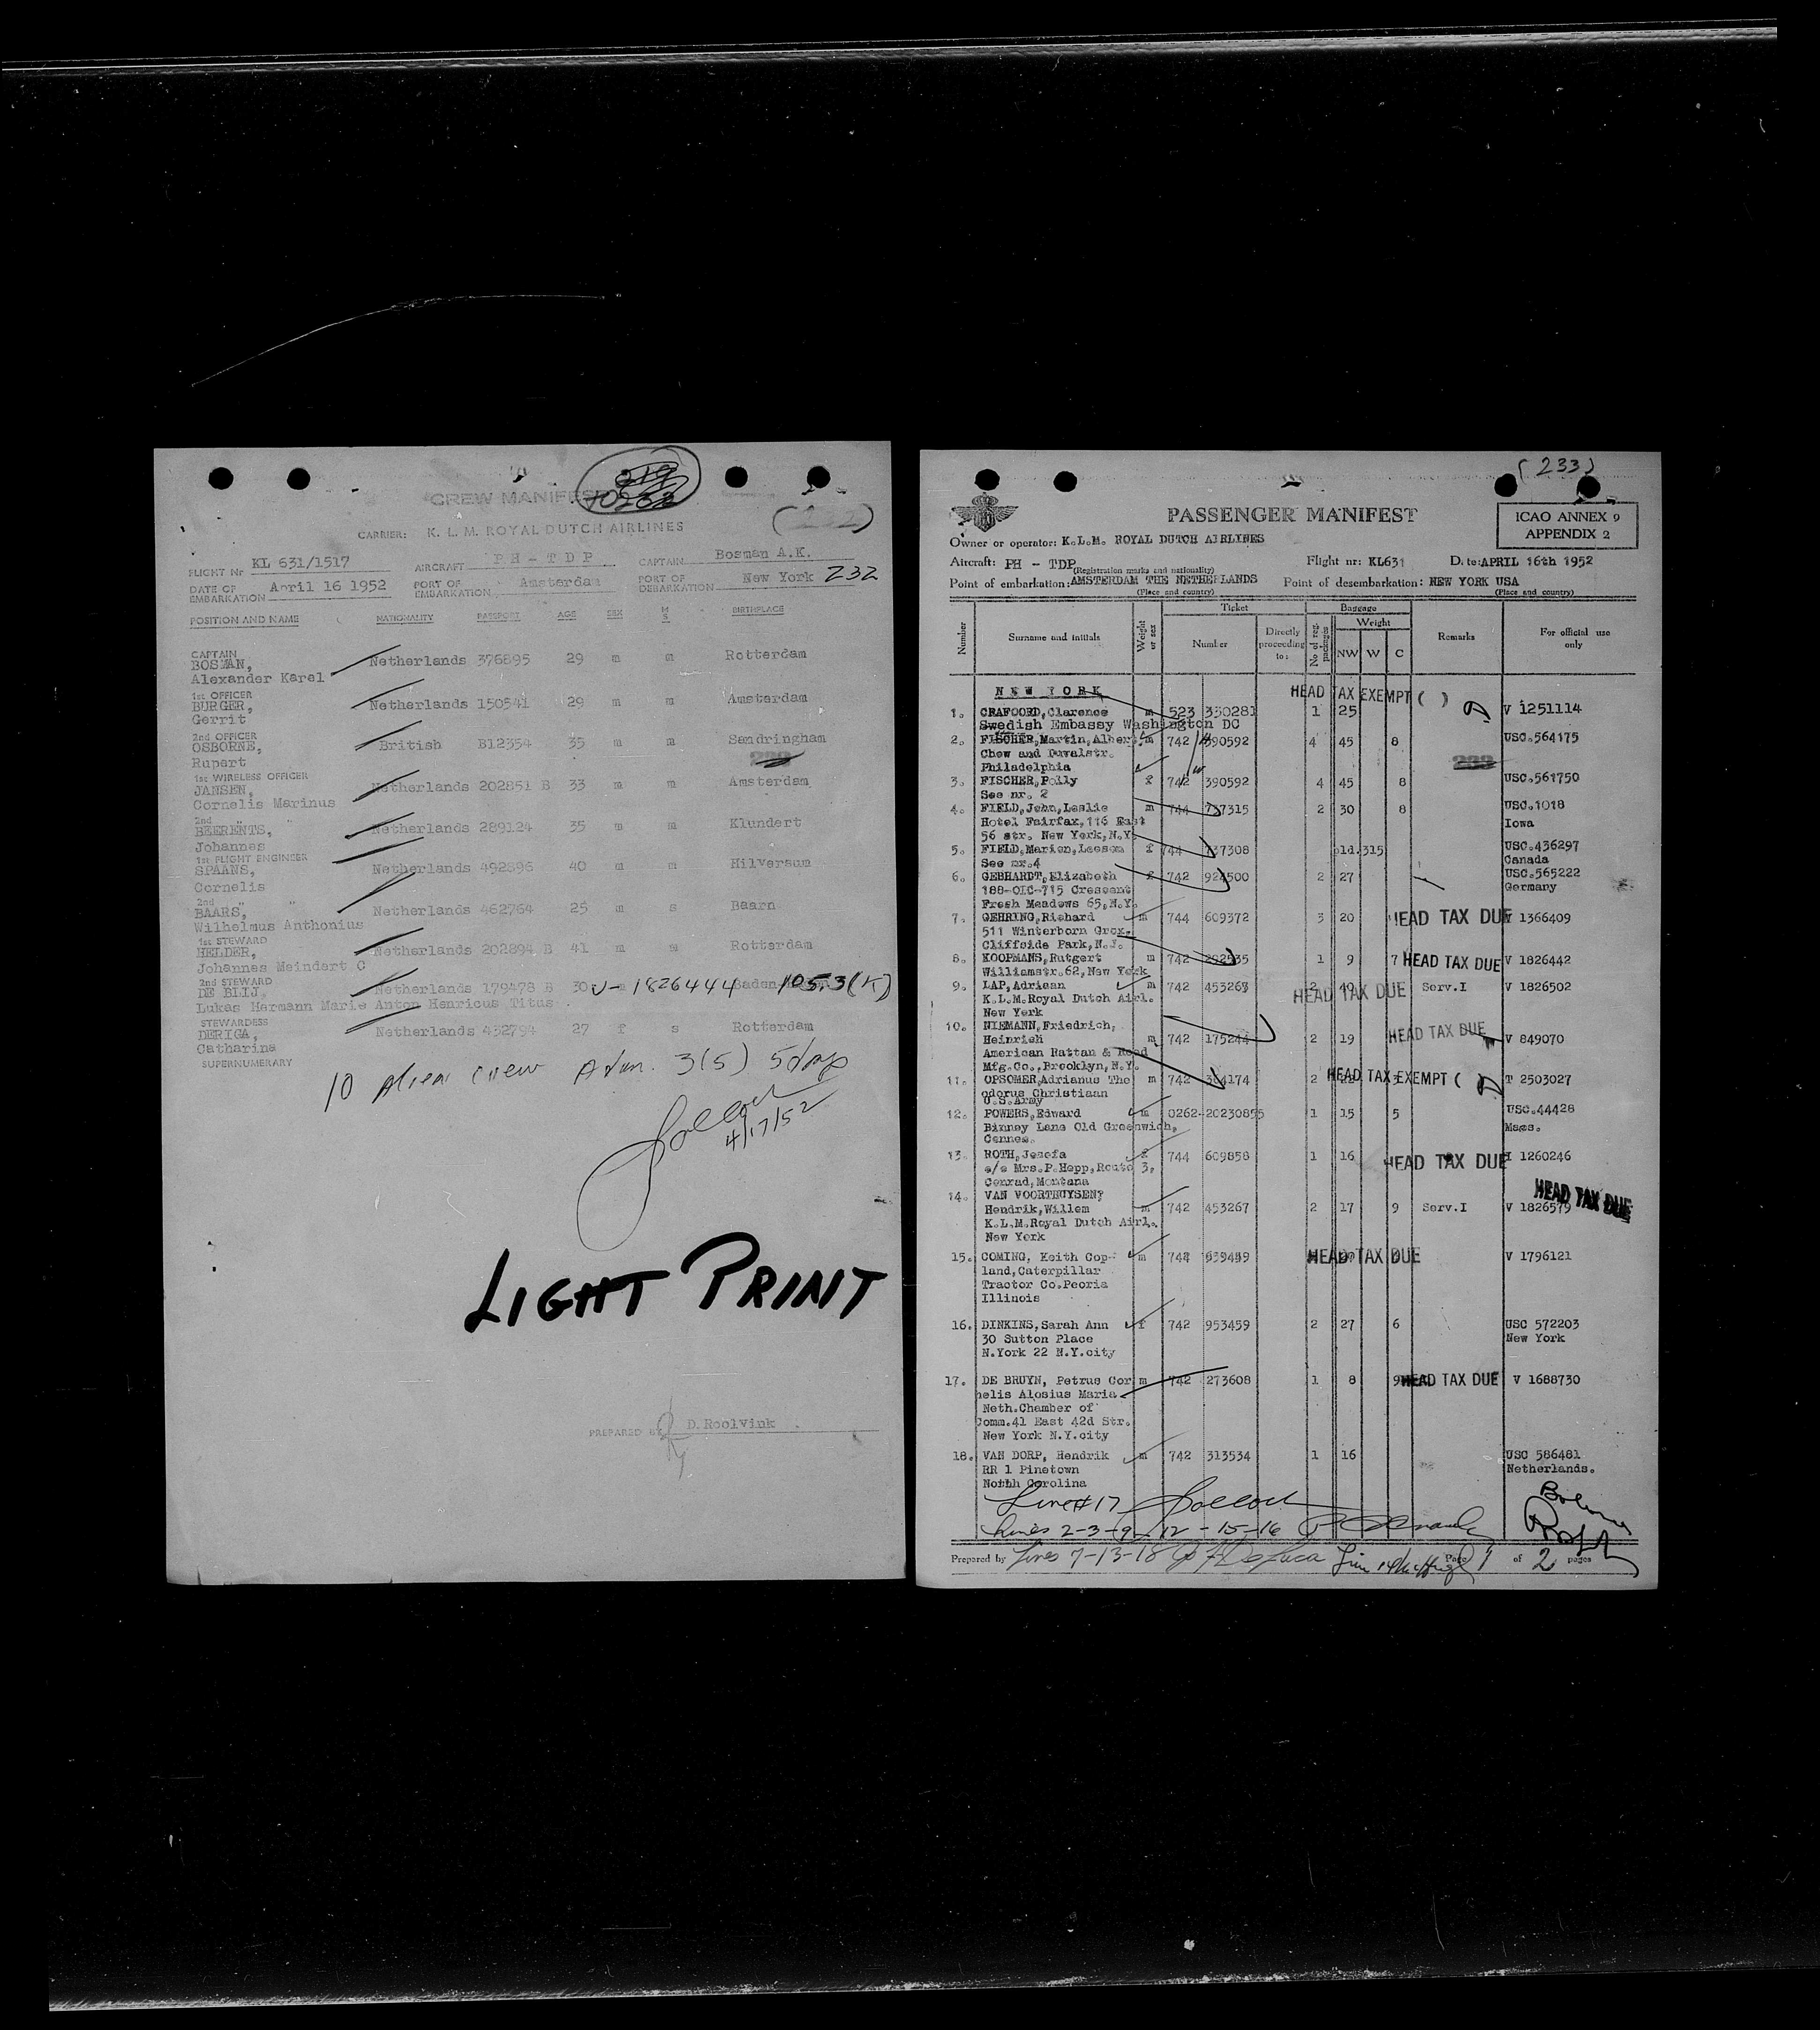 CREW MANIFEST
CARRIER: K. L. M. ROYAL DUTCH AIRLINES
FLIGHT Nr KL 631/1517 AIRCRAFT PH - T D P CAPTAIN Bosman A.K.
DATE OF EMBARKATION April 16 1952 PORT OF EMBARKATION Amsterdam PORT OF DEBARKATION New York 232
POSITION AND NAME NATIONALITY PASSPORT AGE SEX M S BIRTHPLACE
CAPTAIN
BOSMAN, Netherlands 376895 29 m m Rotterdam
Alexander Karel
1st OFFICER
BURGER, Netherlands 150541 29 m m Amsterdam
Gerrit
2nd OFFICER
OSBORNE, British B12354 35 m m Sandringham
Rupert
1st WIRELESS OFFICER
JANSEN, Netherlands 202851 B 33 m m Amsterdam
Cornelis Marinus
2nd " "
BEERENTS, Netherlands 289124 35 m m Klundert
Johannes
1st FLIGHT ENGINEER
SPAANS, Netherlands 492896 40 m m Hilversum
Cornelis
2nd " "
BAARS, Netherlands 462764 25 m s Baarn
Wilhelmus Anthonius
1st STEWARD
HELDER, Netherlands 202894 B 41 m m Rotterdam
Johannes Meindert C
2nd STEWARD
DE BLIJ, Netherlands 179478 B 30 V-1826444 Baden 1053(K)
Lukas Hermann Marie Anton Henricus Titus
STEWARDESS
DERIGA, Netherlands 432794 27 f s Rotterdam
Catharina
SUPERNUMERARY
10 Alien crew Adm. 3(5) 5 days
4/17/52
LIGHT PRINT
PREPARED BY D. Roolvink
(233)
PASSENGER MANIFEST
ICAO ANNEX 9
APPENDIX 2
Owner or operator: K.L.M. ROYAL DUTCH AIRLINES
Aircraft: PH - TDP Flight nr: KL631 Date: APRIL 16th 1952
(Registration marks and nationality)
Point of embarkation: AMSTERDAM THE NETHERLANDS Point of desembarkation: NEW YORK USA
(Place and country) (Place and country)
Number Surname and initials Weight or sex Ticket Number Directly proceeding to: No of reg. packages Baggage Weight NW W C Remarks For official use only
NEW YORK HEAD TAX EXEMPT ( )
1. CRAFOORD, Clarence m 523 350281 1 25 V 1251114
Swedish Embassy Washington DC
2. FISCHER, Martin, Albert m 742 390592 4 45 8 USC.564175
Chew and Duvalstr.
Philadelphia
3. FISCHER, Polly f 742 390592 4 45 8 USC.561750
See nr. 2
4. FIELD, John, Leslie m 744 737315 2 30 8 USC.1018
Hotel Fairfax, 116 East Iowa
56 str. New York, N.Y.
5. FIELD, Marion, Leesom f 744 737308 old.315 USC.436297
See nr.4 Canada
6. GEBHARDT, Elizabeth f 742 924500 2 27 USC.565222
188-OIC-715 Crescent Germany
Fresh Meadows 65, N.Y.
7. GEHRING, Richard m 744 609372 3 20 HEAD TAX DUE V 1366409
511 Winterborn Grox.
Cliffside Park, N.J.
8. KOOPMANS, Rutgert m 742 292535 1 9 7 HEAD TAX DUE V 1826442
Williamstr.62, New York
9. LAP, Adriaan m 742 453268 2 49 HEAD TAX DUE Serv.I V 1826502
K.L.M.Royal Dutch Airl.
New York
10. NIEMANN, Friedrich,
Heinrich m 742 175244 2 19 HEAD TAX DUE V 849070
American Rattan & Reed
Mfg.Co., Brooklyn, N.Y.
11. OPSOMER, Adrianus The m 742 304174 2 HEAD TAX EXEMPT ( ) T 2503027
odorus Christiaan
U.S.Army
12. POWERS, Edward m 0262-20230855 1 15 5 USC.44428
Binney Lane Old Greenwich, Mass.
Connes.
13. ROTH, Josefa f 744 609858 1 16 HEAD TAX DUE I 1260246
c/o Mrs.P.Hepp, Route 3,
Conrad, Montana
14. VAN VOORTHUYSEN, HEAD TAX DUE
Hendrik, Willem m 742 453267 2 17 9 Serv.I V 1826579
K.L.M.Royal Dutch Airl.
New York
15. COMING, Keith Cop- m 744 839489 HEAD TAX DUE V 1796121
land, Caterpillar
Tractor Co.Peoria
Illinois
16. DINKINS, Sarah Ann f 742 953459 2 27 6 USC 572203
30 Sutton Place New York
N.York 22 N.Y.city
17. DE BRUYN, Petrus Cor m 742 273608 1 8 9 HEAD TAX DUE V 1688730
nelis Alosius Maria
Neth.Chamber of
Comm.41 East 42d Str.
New York N.Y.city
18. VAN DORP, Hendrik m 742 313534 1 16 USC 586481
RR 1 Pinetown Netherlands.
North Corolina
Line #17
Lines 2-3-9-12-15-16
Prepared by Lines 7-13-18 Page 1 of 2 pages